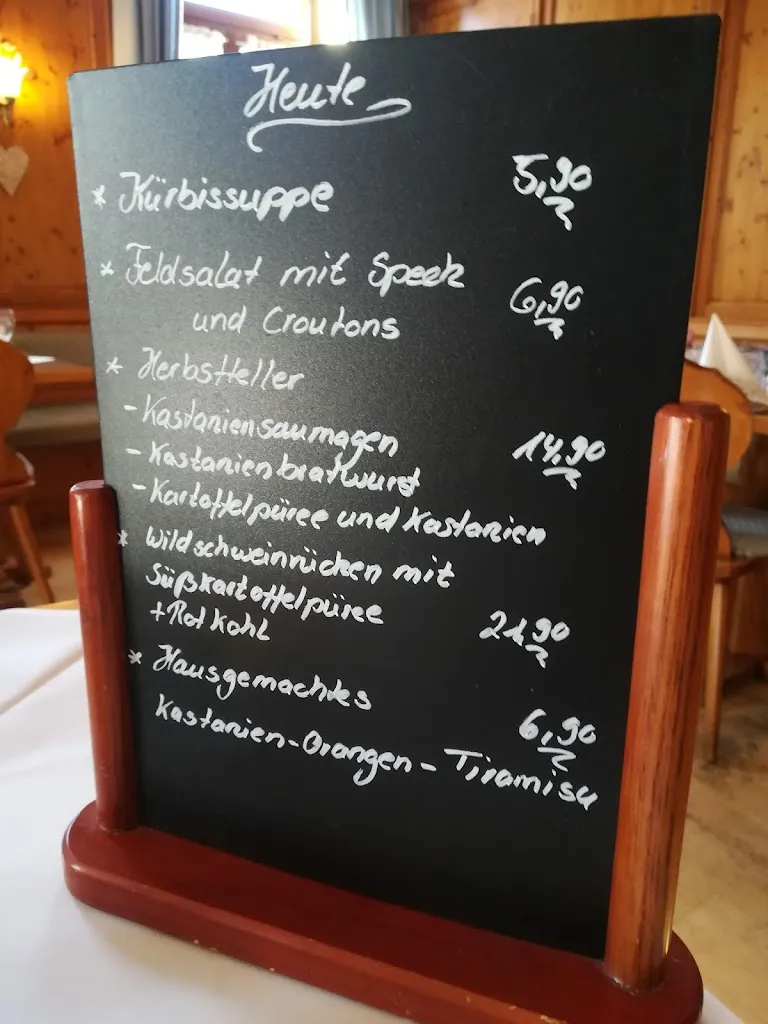 Heute
* Kürbissuppe 5,90
* Feldsalat mit Speck 6,90
und Croutons
* Herbstteller
- Kastaniensaumagen 14.90
- Kastanienbratwurst
- Kartoffelpüree und Kastanien
* Wildschweinrücken mit
Süßkartoffelpüree
+ Rotkohl 21,90
* Hausgemachtes 6,90
Kastanien-Orangen-Tiramisu